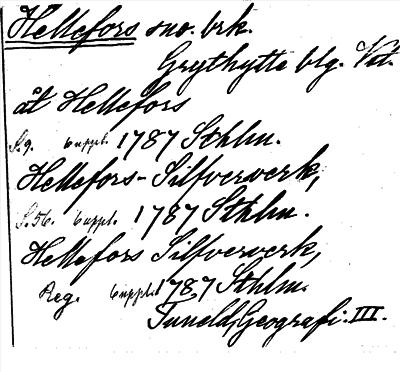 Hellefors sno. brk.
Grythytte blg. Vstm.
åt Hellefors
S. 9. 6 uppl. 1787 Sthlm.
Hellefors-Silfververk,
S. 56. 6 uppl. 1787 Sthlm.
Hellefors Silfververk,
Reg. 6 uppl. 1787 Sthlm.
Tuneld, Geografi. III.